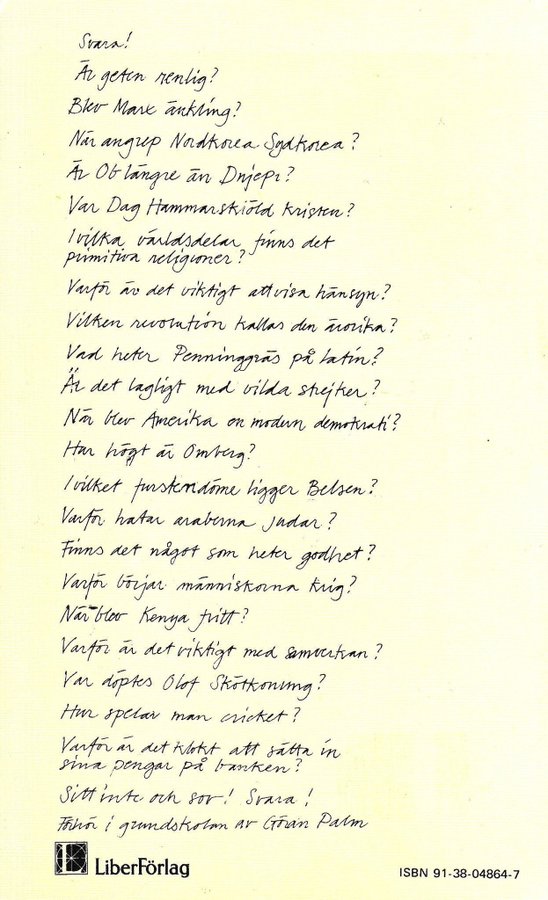 Svara!
Är geten renlig?
Blev Marx änkling?
När angrep Nordkorea Sydkorea?
Är Ob längre än Dnjepr?
Var Dag Hammarskiöld kristen?
I vilka världsdelar finns det
primitiva religioner?
Varför är det viktigt att visa hänsyn?
Vilken revolution kallas den ärorika?
Vad heter Penninggräs på latin?
Är det lagligt med vilda strejker?
När blev Amerika en modern demokrati?
Hur högt är Omberg?
I vilket furstendöme ligger Belsen?
Varför hatar araberna judar?
Finns det något som heter godhet?
Varför börjar människorna krig?
När blev Kenya fritt?
Varför är det viktigt med samverkan?
Var döptes Olof Skötkonung?
Hur spelar man cricket?
Varför är det klokt att sätta in
sina pengar på banken?
Sitt inte och sov! Svara!
Förhör i grundskolan av Göran Palm
LiberFörlag
ISBN 91-38-04864-7